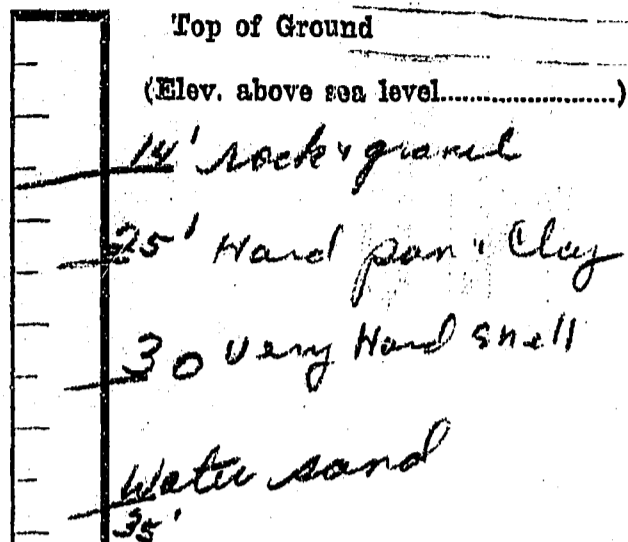 Top of Ground
(Elev. above sea level......................)
14' rock & gravel
25' Hard pan & Clay
30 Very Hard shell
Water sand
35'